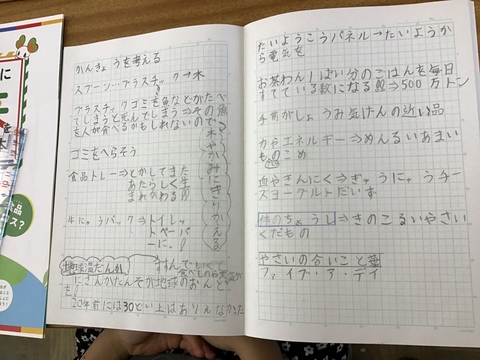 かんきょうを考える
スプーン…プラスチック→木
プラスチックゴミを魚などかたべ
てしまうと死んでしまう⇒その魚
を人が食べるかもしれないので
木やかみにきりかえる
ゴミをへらそう
食品トレー⇒とかしてまた
あたらしく生
まれかわる!!
牛にゅうパック⇒トイレッ
トペーパ
ーに!!
地球温だんか
にさんかたんそが地球のおんど
を
20年前には30ど以上はありえなかった
たいようこうパネル→たいようか
ら電気を
お茶わん1ぱい分のごはんを毎日
すてている数になる 500万トン
手前がしょうみ気げんの近い品
力やエネルギー⇒めんるいあまい
ものこめ
血やきんにく⇒ぎゅうにゅうチー
ズヨーグルトだいず
体のちょうし⇒きのこるいやさい
くだもの
やさいの合いこと葉
ファイブ・ア・デイ
に
品
ス?